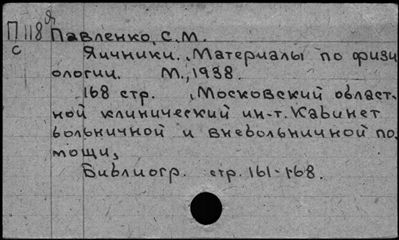 П 118 я
с
Павленко, С.М.
Яичники. Материалы по физи
ологии. М., 1938.
168 стр. (Московский област
ной клинический ин-т. Кабинет
больничной и внебольничной по
мощи)
Библиогр. стр. 161-168.